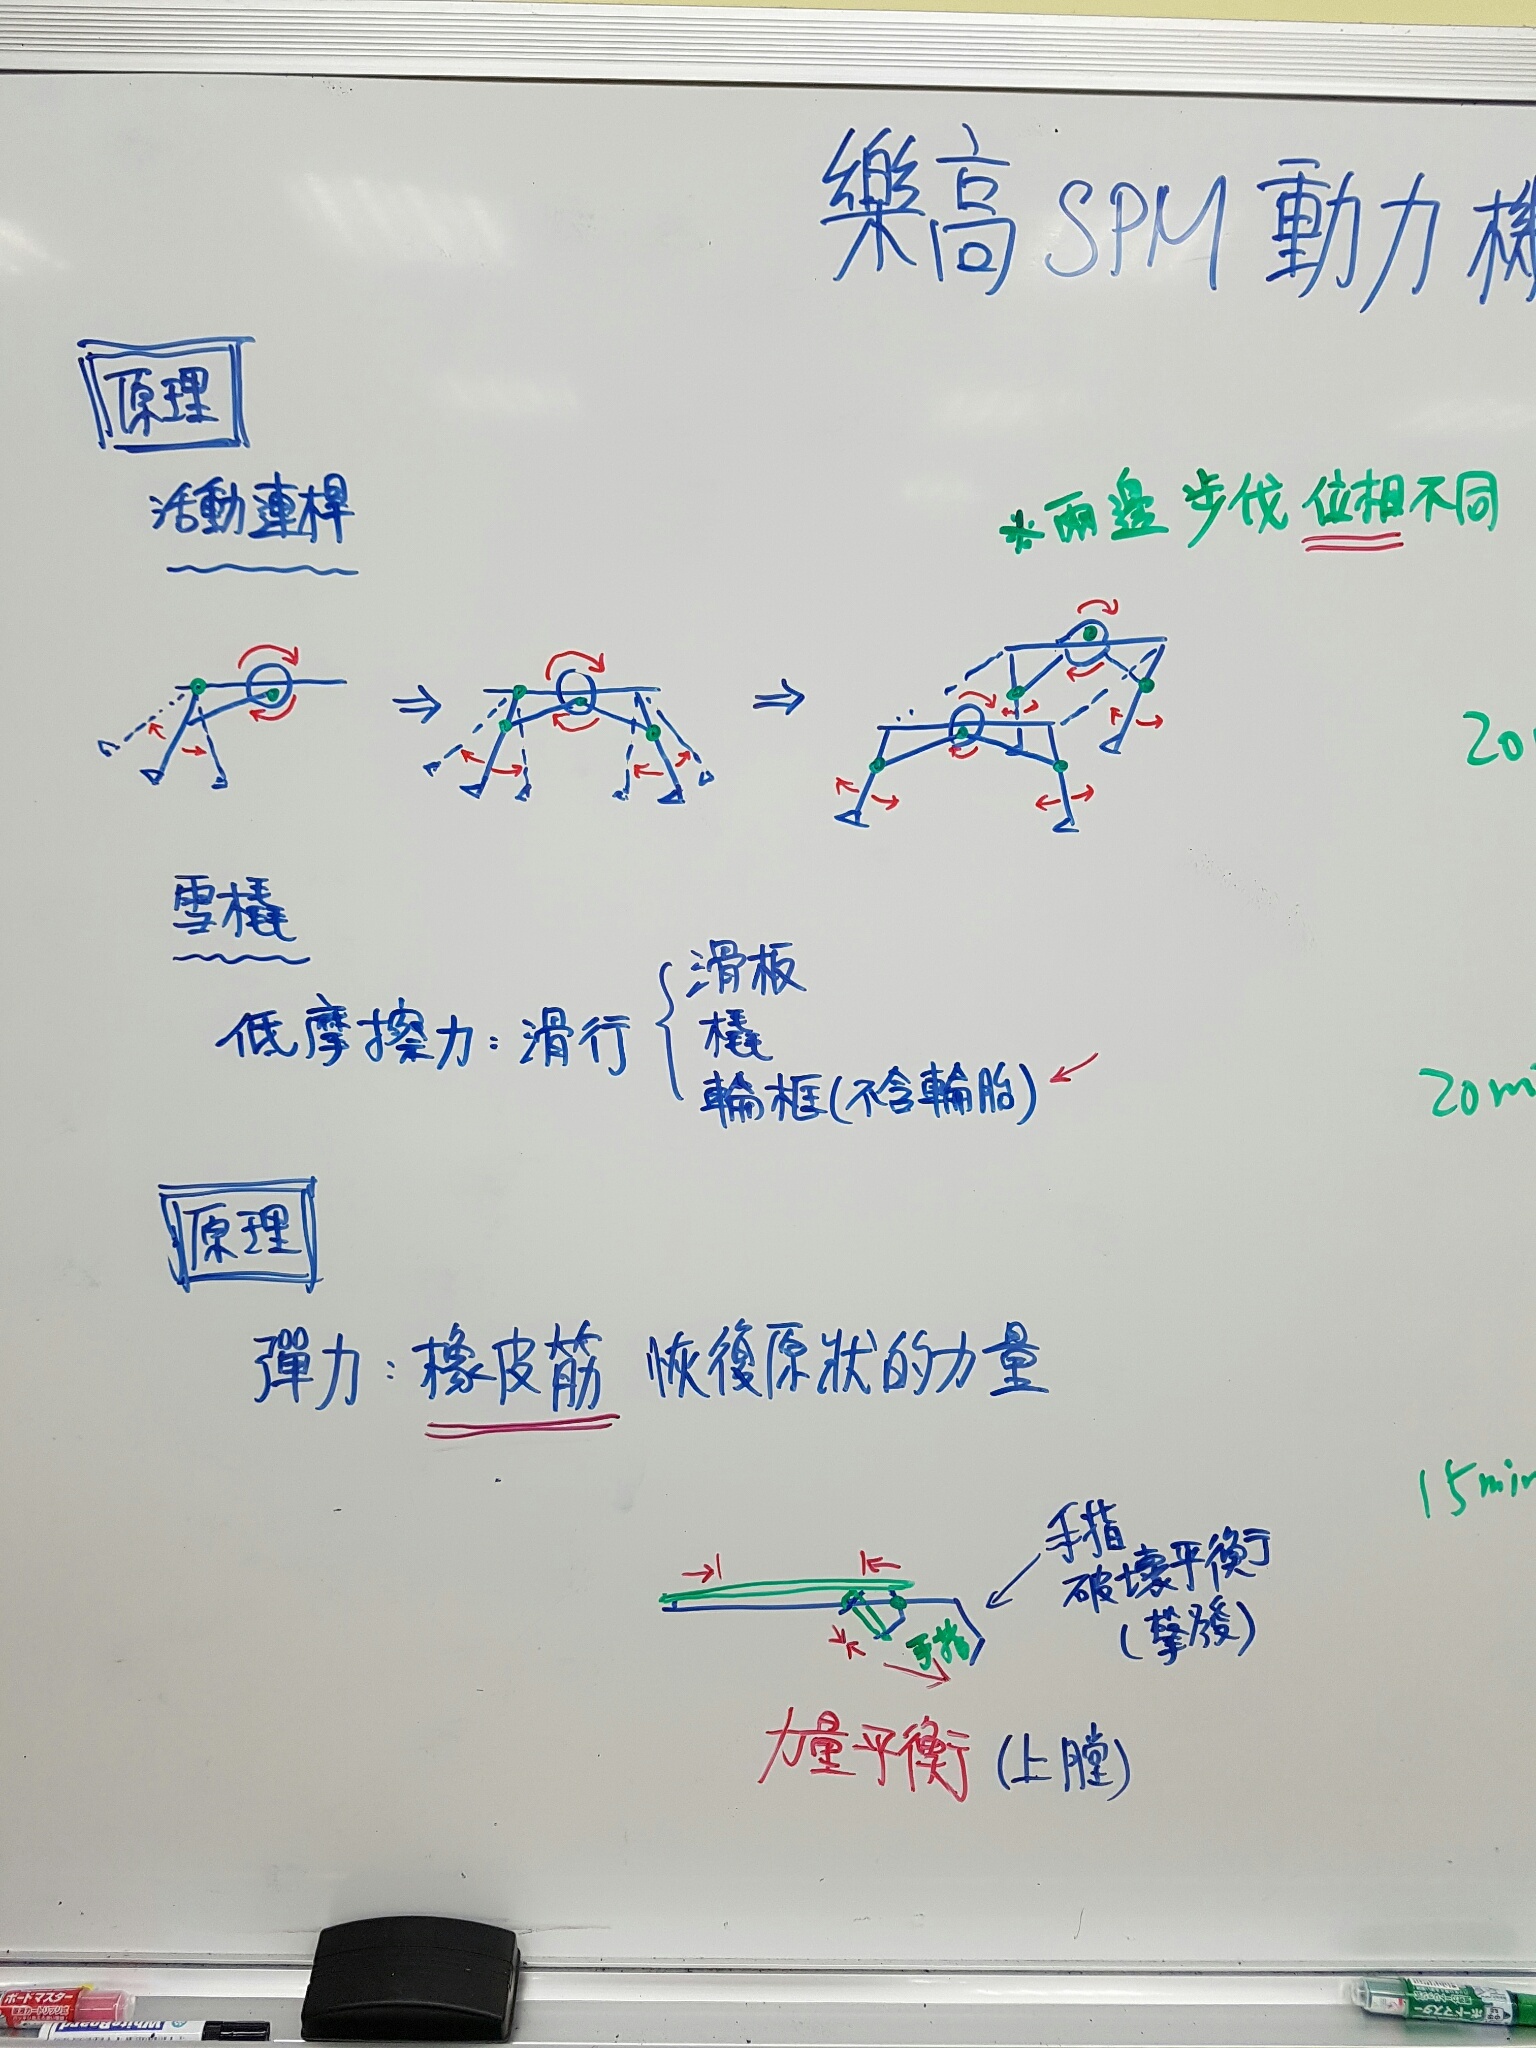 樂高 SPM 動力機
原理
活動連桿
*兩邊 步伐 位相不同
20
雪橇
低摩擦力：滑行
滑板
橇
輪框(不含輪胎)
20mi
原理
彈力：橡皮筋 恢復原狀的力量
15min
手指
破壞平衡
(擊發)
手指
力量平衡 (上膛)
ボードマスター
WhiteBoard
ボードマスター